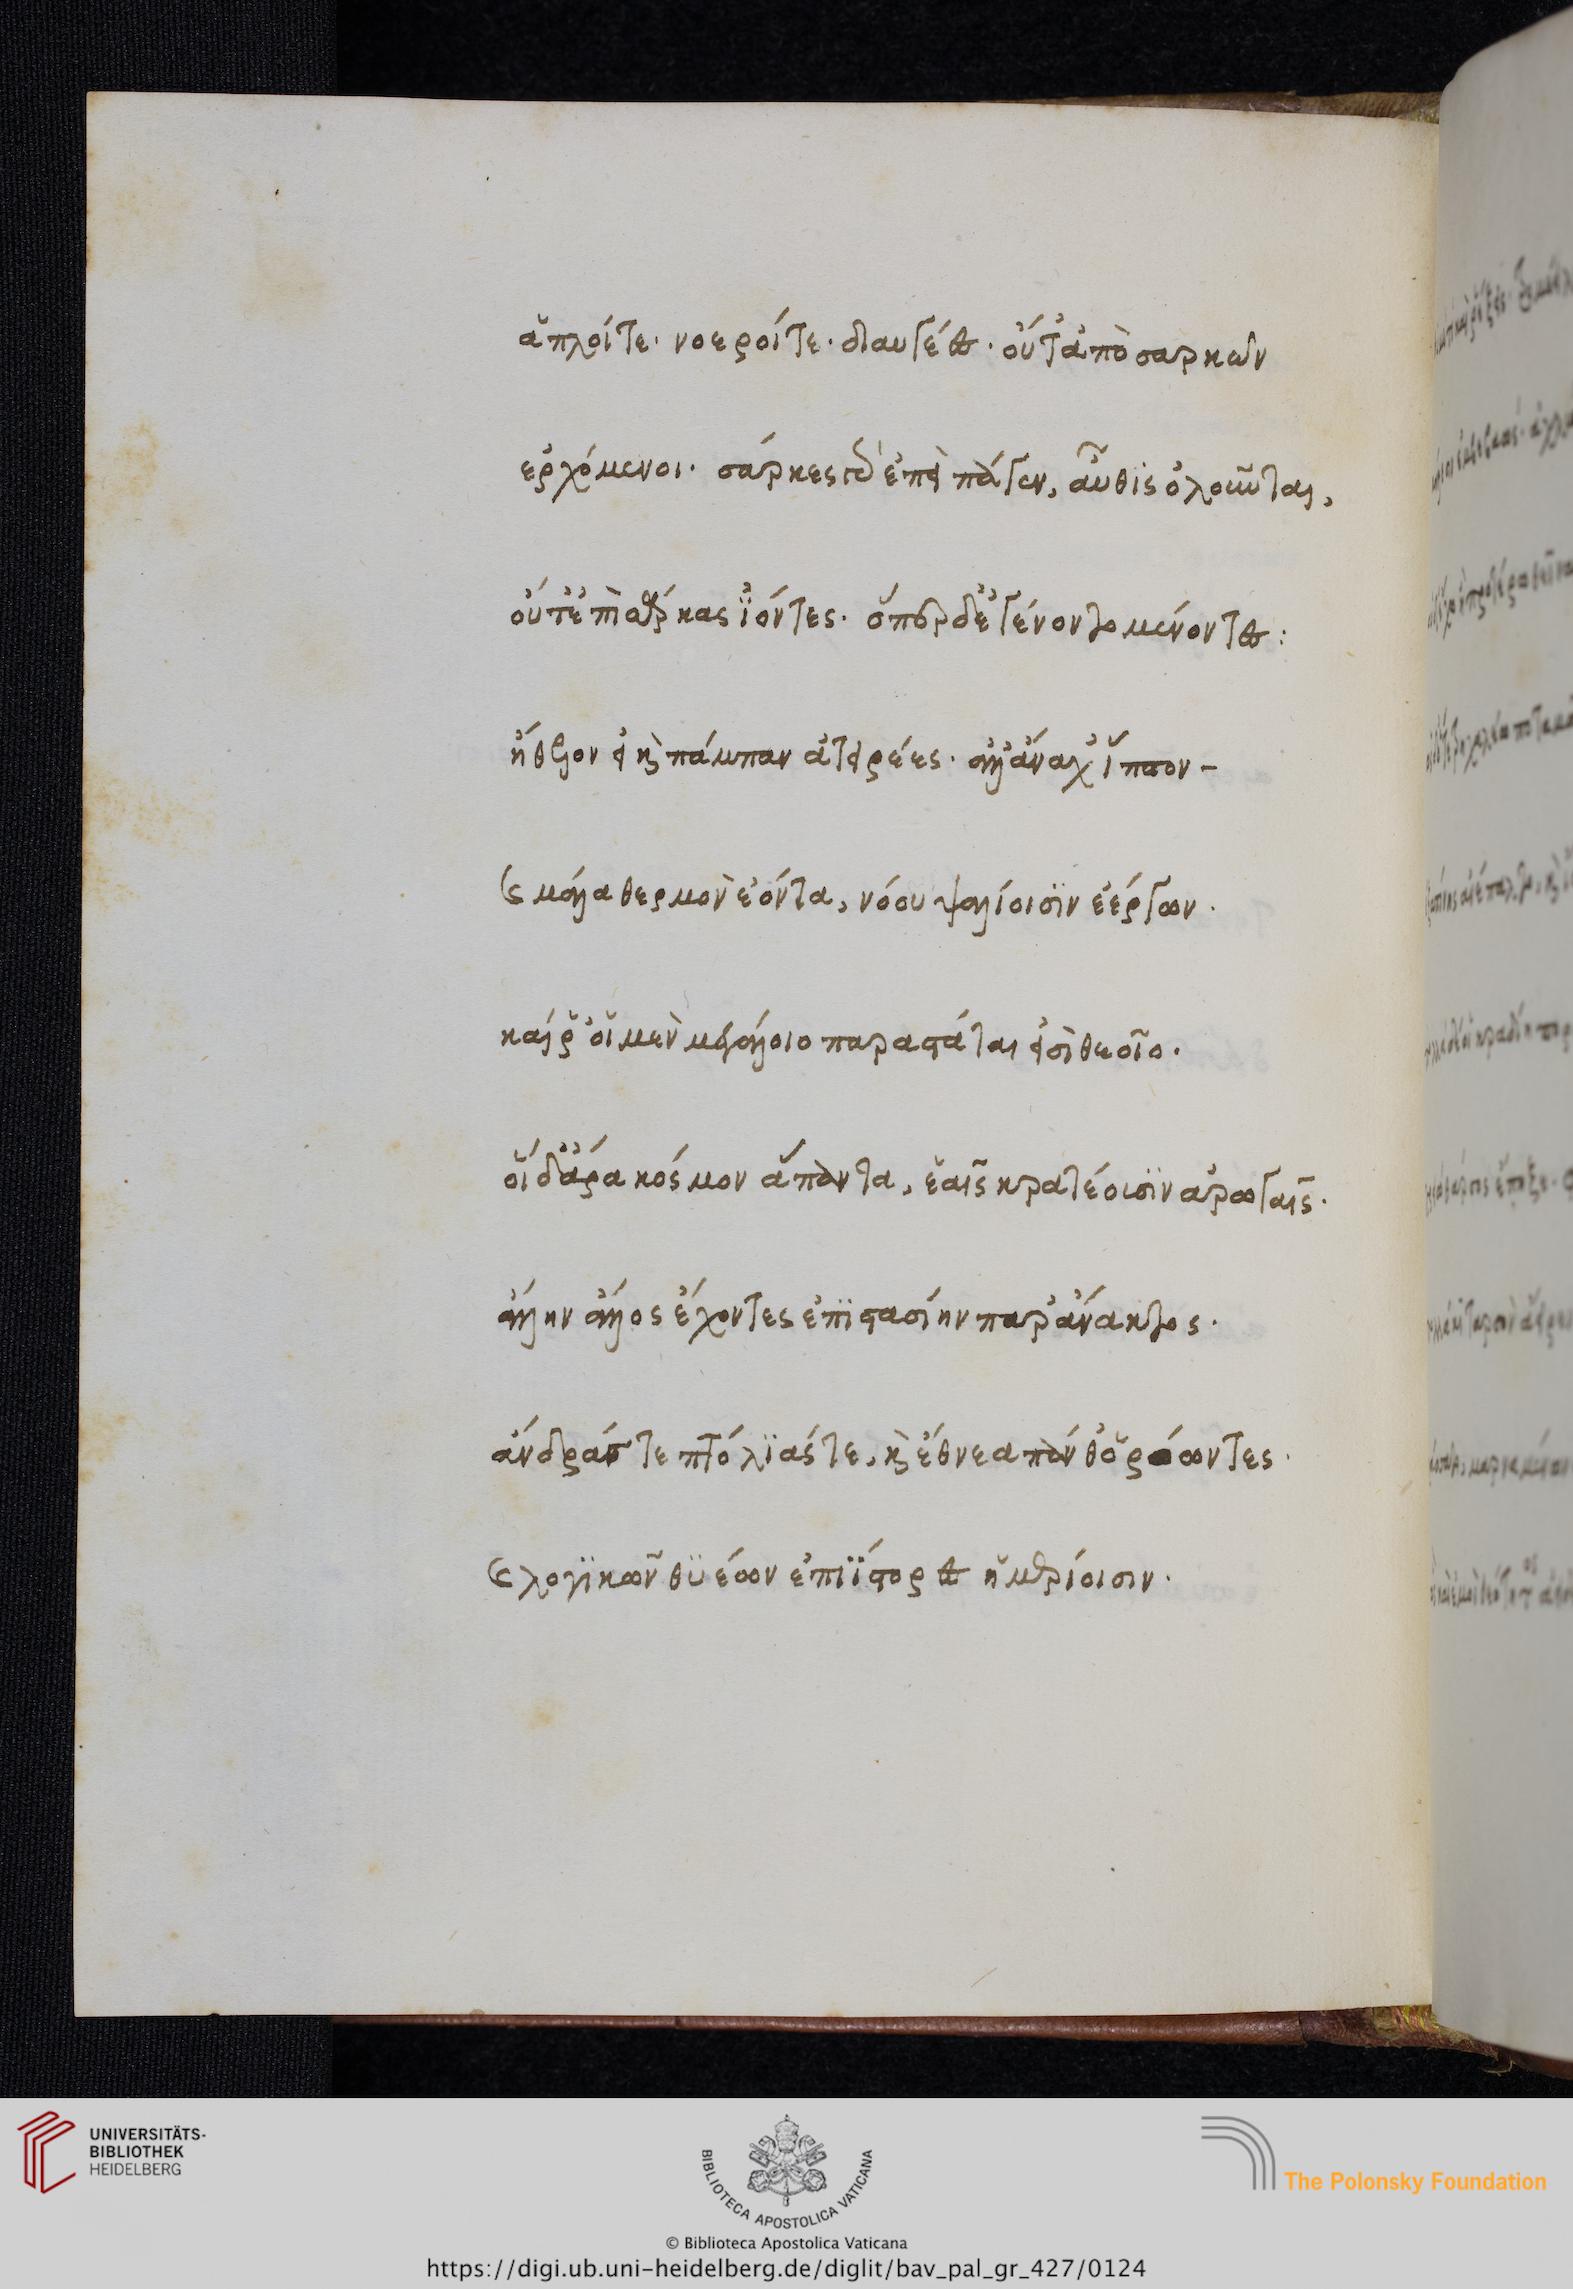 ἁπλοί τε· νοεροί τε· διαυγέες· οὔτ' ἀπὸ σαρκῶν
ἐρχόμενοι· σάρκες δ' ἐπεὶ πάγεν, αὖθις ὀλοῦνται,
οὔτ' ἐπὶ σάρκας ἰόντες· ὅπερ δ' ἐγένοντο μένοντες:
ἤθελον εἰ καὶ πάμπαν ἀτειρέες· ἀλλ' ἄναχ' ἵππον –
καὶ μάλα θερμὸν ἐόντα, νόου ψαλίοισϊν ἐέργων·
καί ῥ' οἱ μὲν μεγάλοιο παραστάται εἰσὶ θεοῖο·
οἱ δ' ἄρα κόσμον ἅπαντα, ἑαῖς κρατέοισϊν ἀρωγαῖς·
ἄλλην ἄλλος ἔχοντες ἐπϊστασίην παρ' ἄνακτος·
ἄνδράς τε πτόλϊάς τε, καὶ ἔθνεα πάνθ' ὁρόωντες·
καὶ λογϊκῶν θϋέων ἐπιΐστορες ἡμερίοισιν·
UNIVERSITÄTS-
BIBLIOTHEK
HEIDELBERG
BIBLIOTECA APOSTOLICA VATICANA
The Polonsky Foundation
© Biblioteca Apostolica Vaticana
https://digi.ub.uni-heidelberg.de/diglit/bav_pal_gr_427/0124